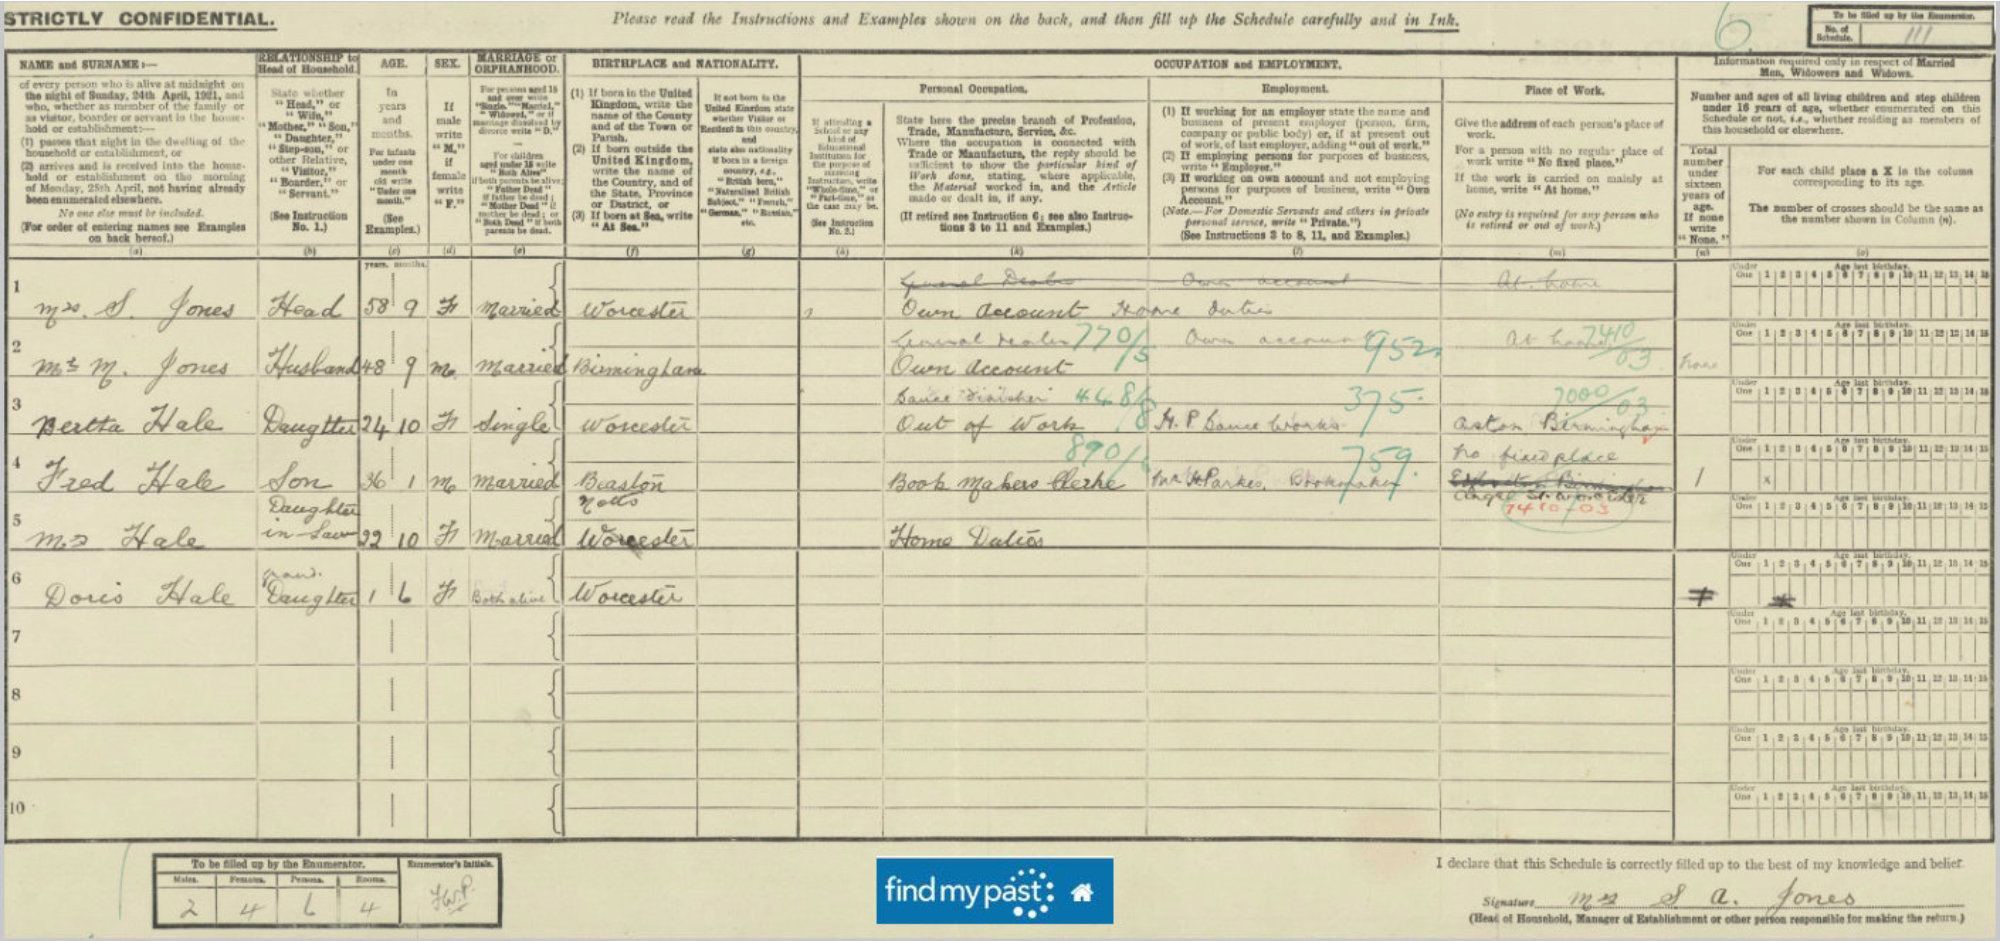 STRICTLY CONFIDENTIAL.
Please read the Instructions and Examples shown on the back, and then fill up the Schedule carefully and in Ink.
6.
To be filled up by the Enumerator.
No. of Schedule. 111
NAME and SURNAME:—
of every person who is alive at midnight on
the night of Sunday, 24th April, 1921, and
who, whether as member of the family or
as visitor, boarder or servant in the house-
hold or establishment:—
(1) passes that night in the dwelling of the
household or establishment, or
(2) arrives and is received into the house-
hold or establishment on the morning
of Monday, 25th April, not having already
been enumerated elsewhere.
No one else must be included.
(For order of entering names see Examples
on back hereof.)
(a)
RELATIONSHIP to
Head of Household.
State whether
"Head," or
"Wife,"
"Mother," "Son,"
"Daughter,"
"Step-son," or
other Relative,
"Visitor,"
"Boarder," or
"Servant."
(See Instruction
No. 1.)
(b)
AGE.
In
years
and
months.
For infants
under one
month
old write
"Under one
month."
(See
Examples.)
(c)
SEX.
If
male
write
"M,"
if
female
write
"F."
(d)
MARRIAGE or
ORPHANHOOD.
For persons aged 15
and over write
"Single," "Married,"
"Widowed," or if
marriage dissolved by
divorce write "D."
For children
aged under 15 write
"Both Alive"
if both parents be alive;
"Father Dead"
if father be dead;
"Mother Dead" if
mother be dead; or
"Both Dead" if both
parents be dead.
(e)
BIRTHPLACE and NATIONALITY.
(1) If born in the United
Kingdom, write the
name of the County
and of the Town or
Parish.
(2) If born outside the
United Kingdom,
write the name of
the Country, and of
the State, Province
or District, or
(3) If born at Sea, write
"At Sea."
(f)
If not born in the
United Kingdom state
whether Visitor or
Resident in this country,
and
state also nationality
if born in a foreign
country, e.g.,
"British born,"
"Naturalised British
Subject," "French,"
"German," "Russian,"
etc.
(g)
If attending a
School or any
kind of
Educational
Institution for
the purpose of
receiving
Instruction, write
"Whole-time," or
"Part-time," as
the case may be.
(See Instruction
No. 2.)
(h)
OCCUPATION and EMPLOYMENT.
Personal Occupation.
State here the precise branch of Profession,
Trade, Manufacture, Service, &c.
Where the occupation is connected with
Trade or Manufacture, the reply should be
sufficient to show the particular kind of
Work done, stating, where applicable,
the Material worked in, and the Article
made or dealt in, if any.
(If retired see Instruction 6; see also Instruc-
tions 3 to 11 and Examples.)
(k)
Employment.
(1) If working for an employer state the name and
business of present employer (person, firm,
company or public body) or, if at present out
of work, of last employer, adding "out of work."
(2) If employing persons for purposes of business,
write "Employer."
(3) If working on own account and not employing
persons for purposes of business, write "Own
Account."
(Note.—For Domestic Servants and others in private
personal service, write "Private.")
(See Instructions 3 to 8, 11, and Examples.)
(l)
Place of Work.
Give the address of each person's place of
work.
For a person with no regular place of
work write "No fixed place."
If the work is carried on mainly at
home, write "At home."
(No entry is required for any person who
is retired or out of work.)
(m)
Information required only in respect of Married
Men, Widowers and Widows.
Number and ages of all living children and step children
under 16 years of age, whether enumerated on this
Schedule or not, i.e., whether residing as members of
this household or elsewhere.
Total
number
under
sixteen
years of
age.
If none
write
"None."
(n)
For each child place a X in the column
corresponding to its age.
The number of crosses should be the same as
the number shown in Column (n).
(o)
years. months.
Under One Age last birthday. 1 2 3 4 5 6 7 8 9 10 11 12 13 14 15
General Dealer Own account At home
1 Mrs. S. Jones Head 58 9 F Married Worcester Own Account Home duties
General dealer 770/5 Own account 952 At home 7410/03
2 Mr M. Jones Husband 48 9 M Married Birmingham Own Account none
Sauce Finisher 448/8 375 7000/03
3 Bertha Hale Daughter 24 10 F Single Worcester Out of Work H.P Sauce Works Aston Birmingham
890/ 759. No fixed place
4 Fred Hale Son 36 1 M Married Beaston Notts Book Makers Clerke Mr H Parkes, Bookmaker Angel St. Worcester 1 x
7410-03
5 Mrs Hale Daughter in Law 22 10 F Married Worcester Home Duties
6 Doris Hale Grand Daughter 1 6 F Both alive Worcester
7
8
9
10
To be filled up by the Enumerator.
Males. Females. Persons. Rooms.
2 4 6 4
Enumerator's Initials.
F.W.P.
findmypast
I declare that this Schedule is correctly filled up to the best of my knowledge and belief.
Signature Mrs S A. Jones
(Head of Household, Manager of Establishment or other person responsible for making the return.)